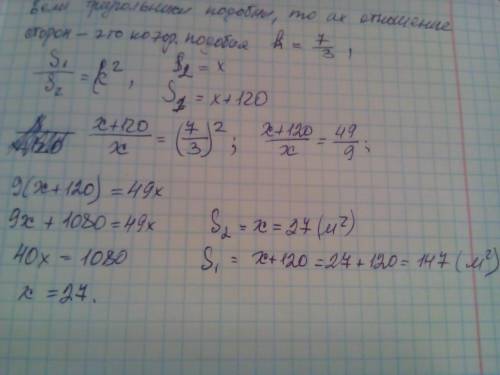 Если треугольники подобны, то их отношение
сторон – это коэф. подобия k = 7/3 ;
S₁/S₂ = k² , S₂ = x
S₁ = x+120
(x+120)/x = (7/3)² ; (x+120)/x = 49/9 ;
9(x+120) = 49x
9x + 1080 = 49x S₂ = x = 27 (м²)
40x = 1080 S₁ = x+120 = 27+120 = 147 (м²)
x = 27.